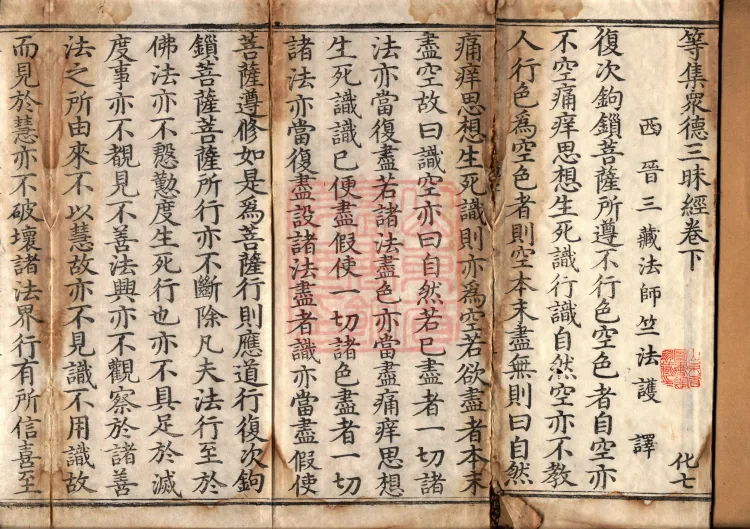 等集衆德三昧經卷下 化七
西晉三藏法師竺法護 譯
復次鉤鎖菩薩所遵不行色空色者自空亦
不空痛痒思想生死識行識自然空亦不教
人行色爲空色者則空本末盡無則曰自然
痛痒思想生死識則亦爲空若欲盡者本末
盡空故曰識空亦曰自然若已盡者一切諸
法亦當復盡若諸法盡色亦當盡痛痒思想
生死識識已便盡假使一切諸色盡者一切
諸法亦當復盡設諸法盡者識亦當盡假使
菩薩遵修如是爲菩薩行則應道行復次鉤
鎖菩薩菩薩所行亦不斷除凡夫法行至於
佛法亦不慇懃度生死行也亦不具足於滅
度事亦不覩見不善法興亦不觀察於諸善
法之所由來不以慧故亦不見識不用識故
而見於慧亦不破壞諸法界行有所信喜至